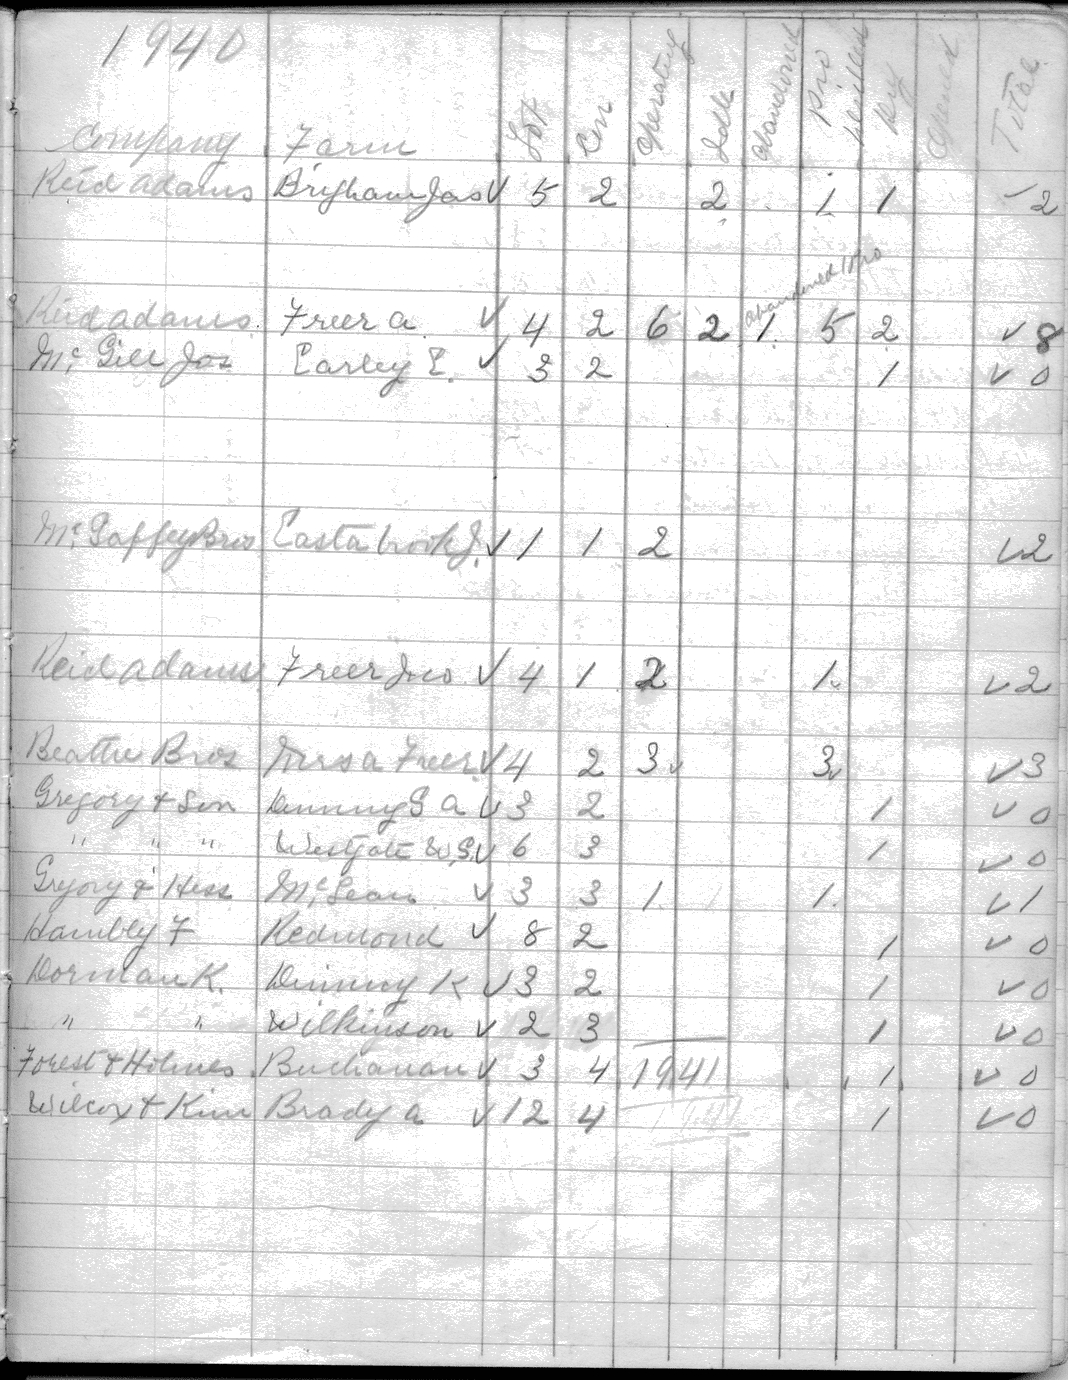 1940
Company Farm Lot Con Operating Idle Abandoned Pro Drilled Dry Opened Total
Reid Adams Brigham Jas ✓ 5 2 2 1 1 2
abandoned 1 Pro
Reid Adams Freer A ✓ 4 2 6 2 1 5 2 ✓ 8
Mc Gill Jos Earley E. ✓ 3 2 1 ✓ 0
Mc Gaffey Bros Eastabrook J. ✓ 1 1 2 ✓ 2
Reid Adams Freer Jno ✓ 4 1 2 1 ✓ 2
Beattie Bros Mrs A Freer ✓ 4 2 3 3 ✓ 3
Gregory & Son G A ✓ 3 2 1 ✓ 0
" " " Westgate W.G. ✓ 6 3 1 ✓ 0
Gregory & Hess McLean ✓ 3 3 1 1 ✓ 1
Hambly F Redmond ✓ 8 2 1 ✓ 0
Dorman K. K ✓ 3 2 1 ✓ 0
" " Wilkinson ✓ 2 3 1 ✓ 0
Forest & Holmes Buchanan ✓ 3 4 1941 1 ✓ 0
Wilcox & Kim Brady A ✓ 12 4 1941 1 ✓ 0